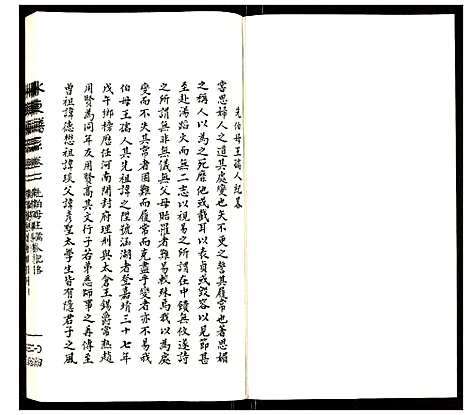 先伯母王孺人記畧
嘗思婦人之道其處變也矢不更之誓其履常也著思媚
之稱人以為之死靡他或截耳以表貞或毀容以見節甚
至赴湯蹈火而無二志以視易之所謂在中饋無攸遂詩
之所謂無非無儀無父母貽罹者難易較殊焉我以為處
變而不失其常者固難而履常而克盡乎變者亦不易我
伯母王孺人其先祖諱之陞號涵湖者登嘉靖三十七年
戊午鄉榜歷任河南開封府理刑與太倉王錫爵常熟趙
用賢為同年友用賢奇其文行子若弟悉師事之再傳至
曾祖諱德懋祖諱琰父諱彥聖太學生皆有隱君子之風